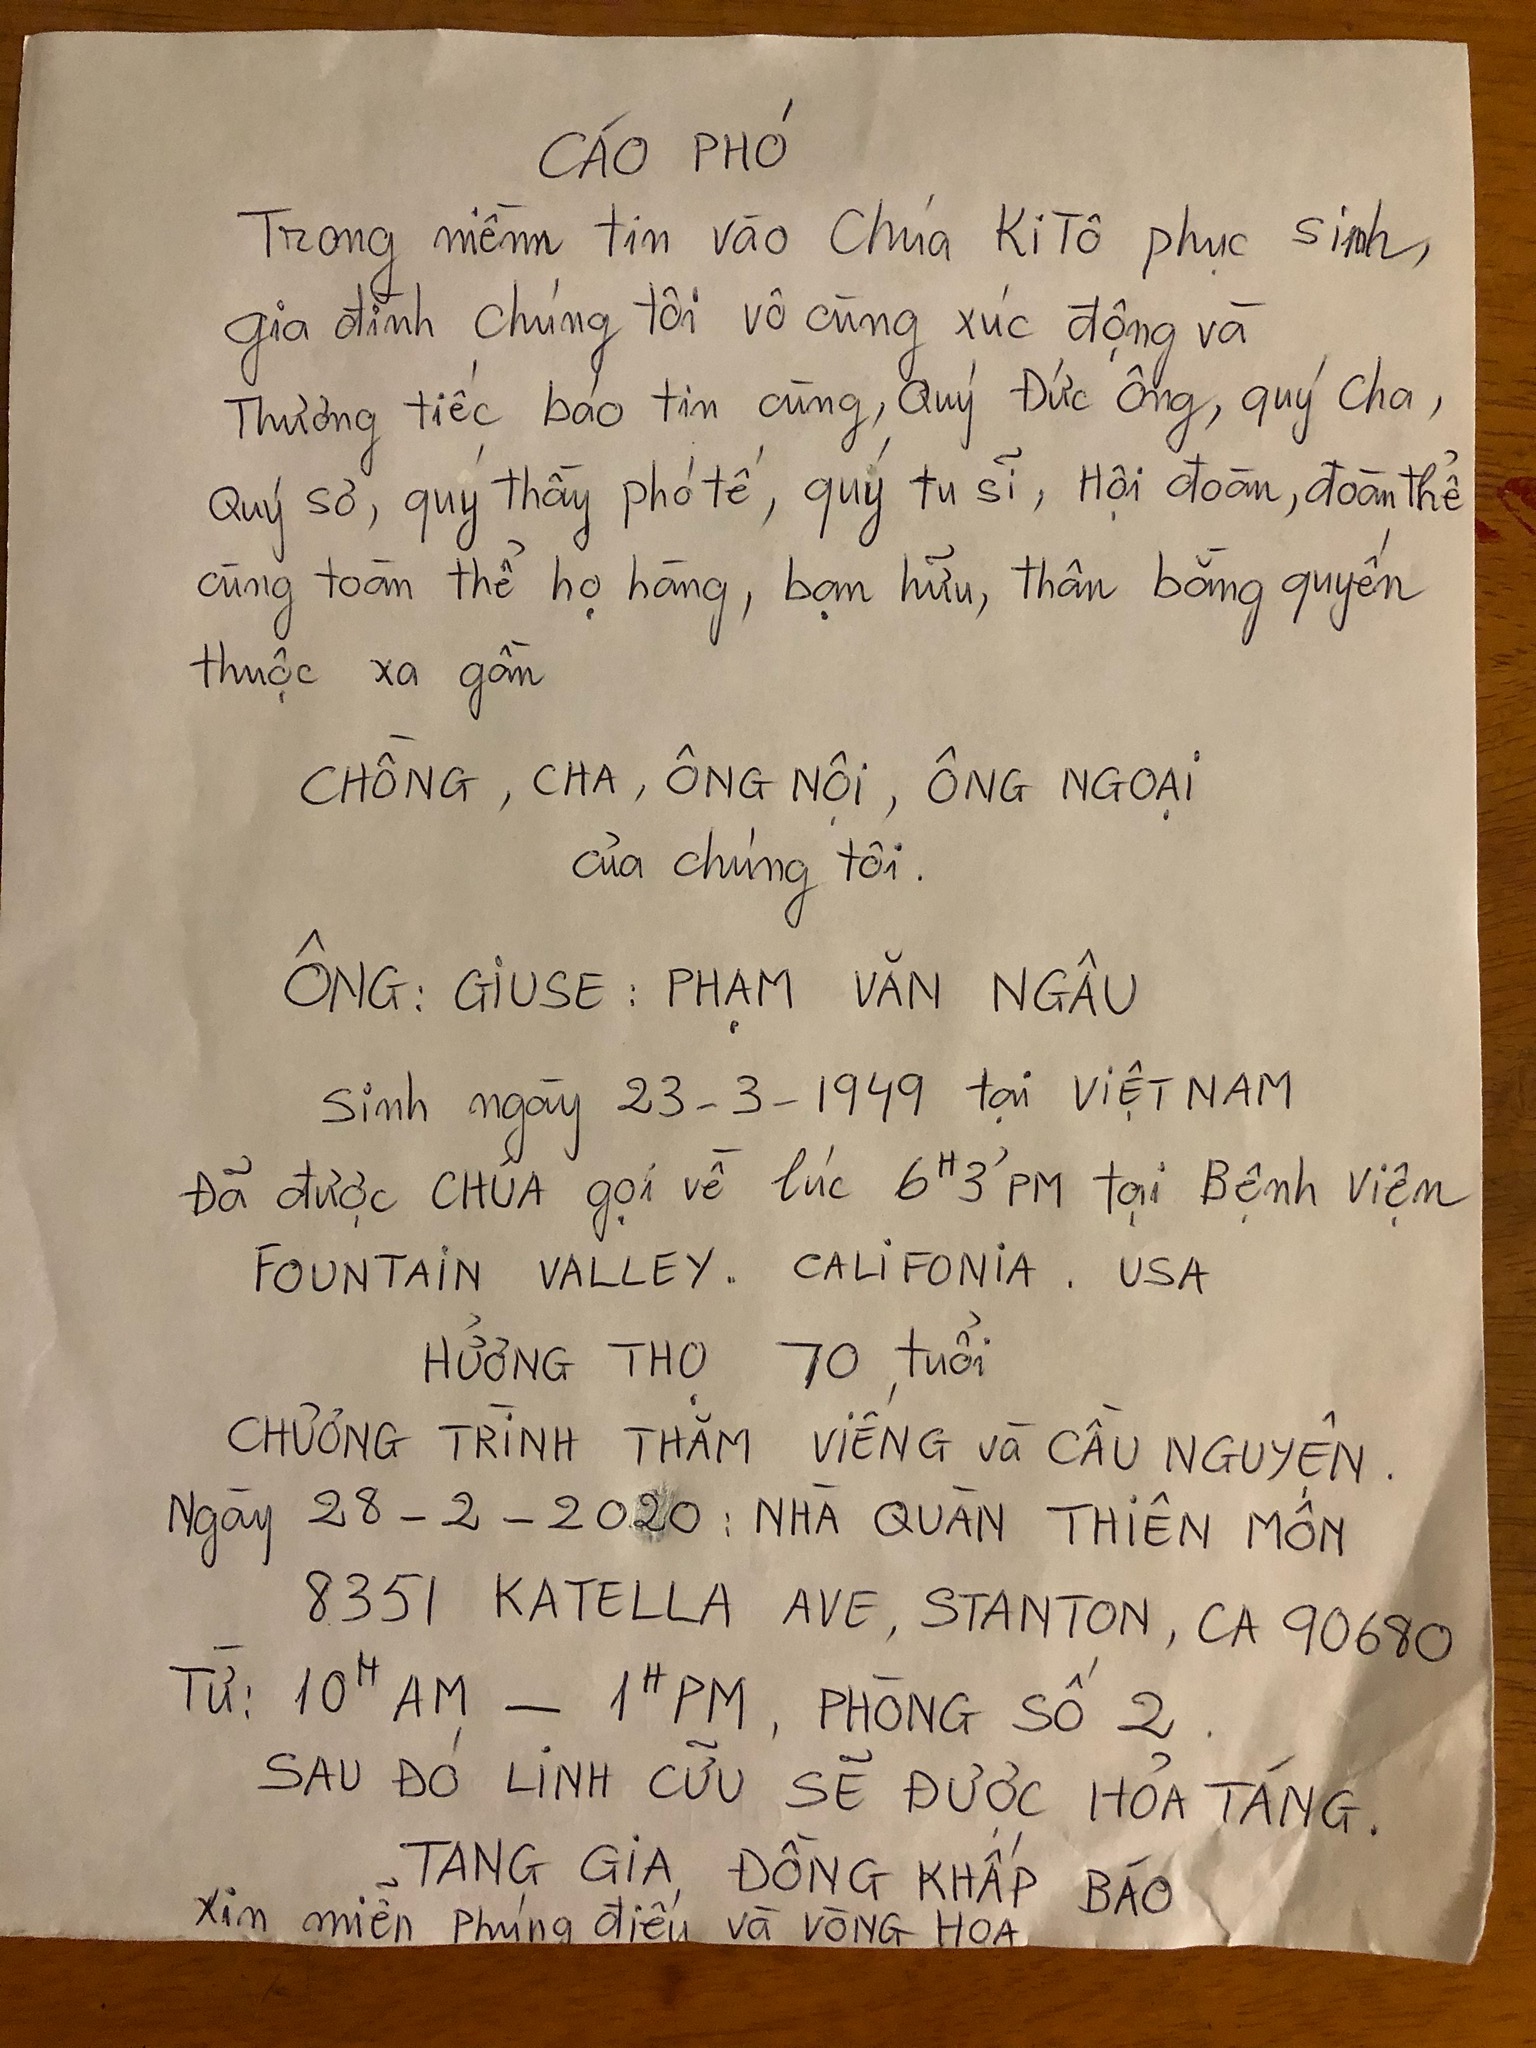 CÁO PHÓ
Trong niềm tin vào Chúa KiTô phục sinh,
gia đình chúng tôi vô cùng xúc động và
Thương tiếc báo tin cùng, Quý Đức Ông, quý Cha,
Quý sơ, quý thầy phó tế, quý tu sĩ, Hội đoàn, đoàn thể
cùng toàn thể họ hàng, bạn hữu, thân bằng quyến
thuộc xa gần
CHỒNG, CHA, ÔNG NỘI, ÔNG NGOẠI
của chúng tôi.
ÔNG: GIUSE: PHẠM VĂN NGÂU
sinh ngày 23-3-1949 tại VIỆT NAM
Đã được CHÚA gọi về lúc 6H3' PM tại Bệnh Viện
FOUNTAIN VALLEY. CALIFONIA. USA
HƯỞNG THỌ 70 tuổi
CHƯƠNG TRÌNH THĂM VIẾNG và CẦU NGUYỆN.
Ngày 28-2-2020: NHÀ QUÀN THIÊN MÔN
8351 KATELLA AVE, STANTON, CA 90680
TỪ: 10H AM – 1H PM, PHÒNG SỐ 2.
SAU ĐÓ LINH CỮU SẼ ĐƯỢC HỎA TÁNG.
TANG GIA ĐỒNG KHẤP BÁO
Xin miễn Phúng điếu và VÒNG HOA